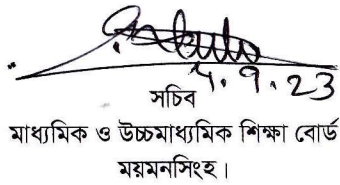 ৭.9.23
সচিব
মাধ্যমিক ও উচ্চমাধ্যমিক শিক্ষা বোর্ড
ময়মনসিংহ।